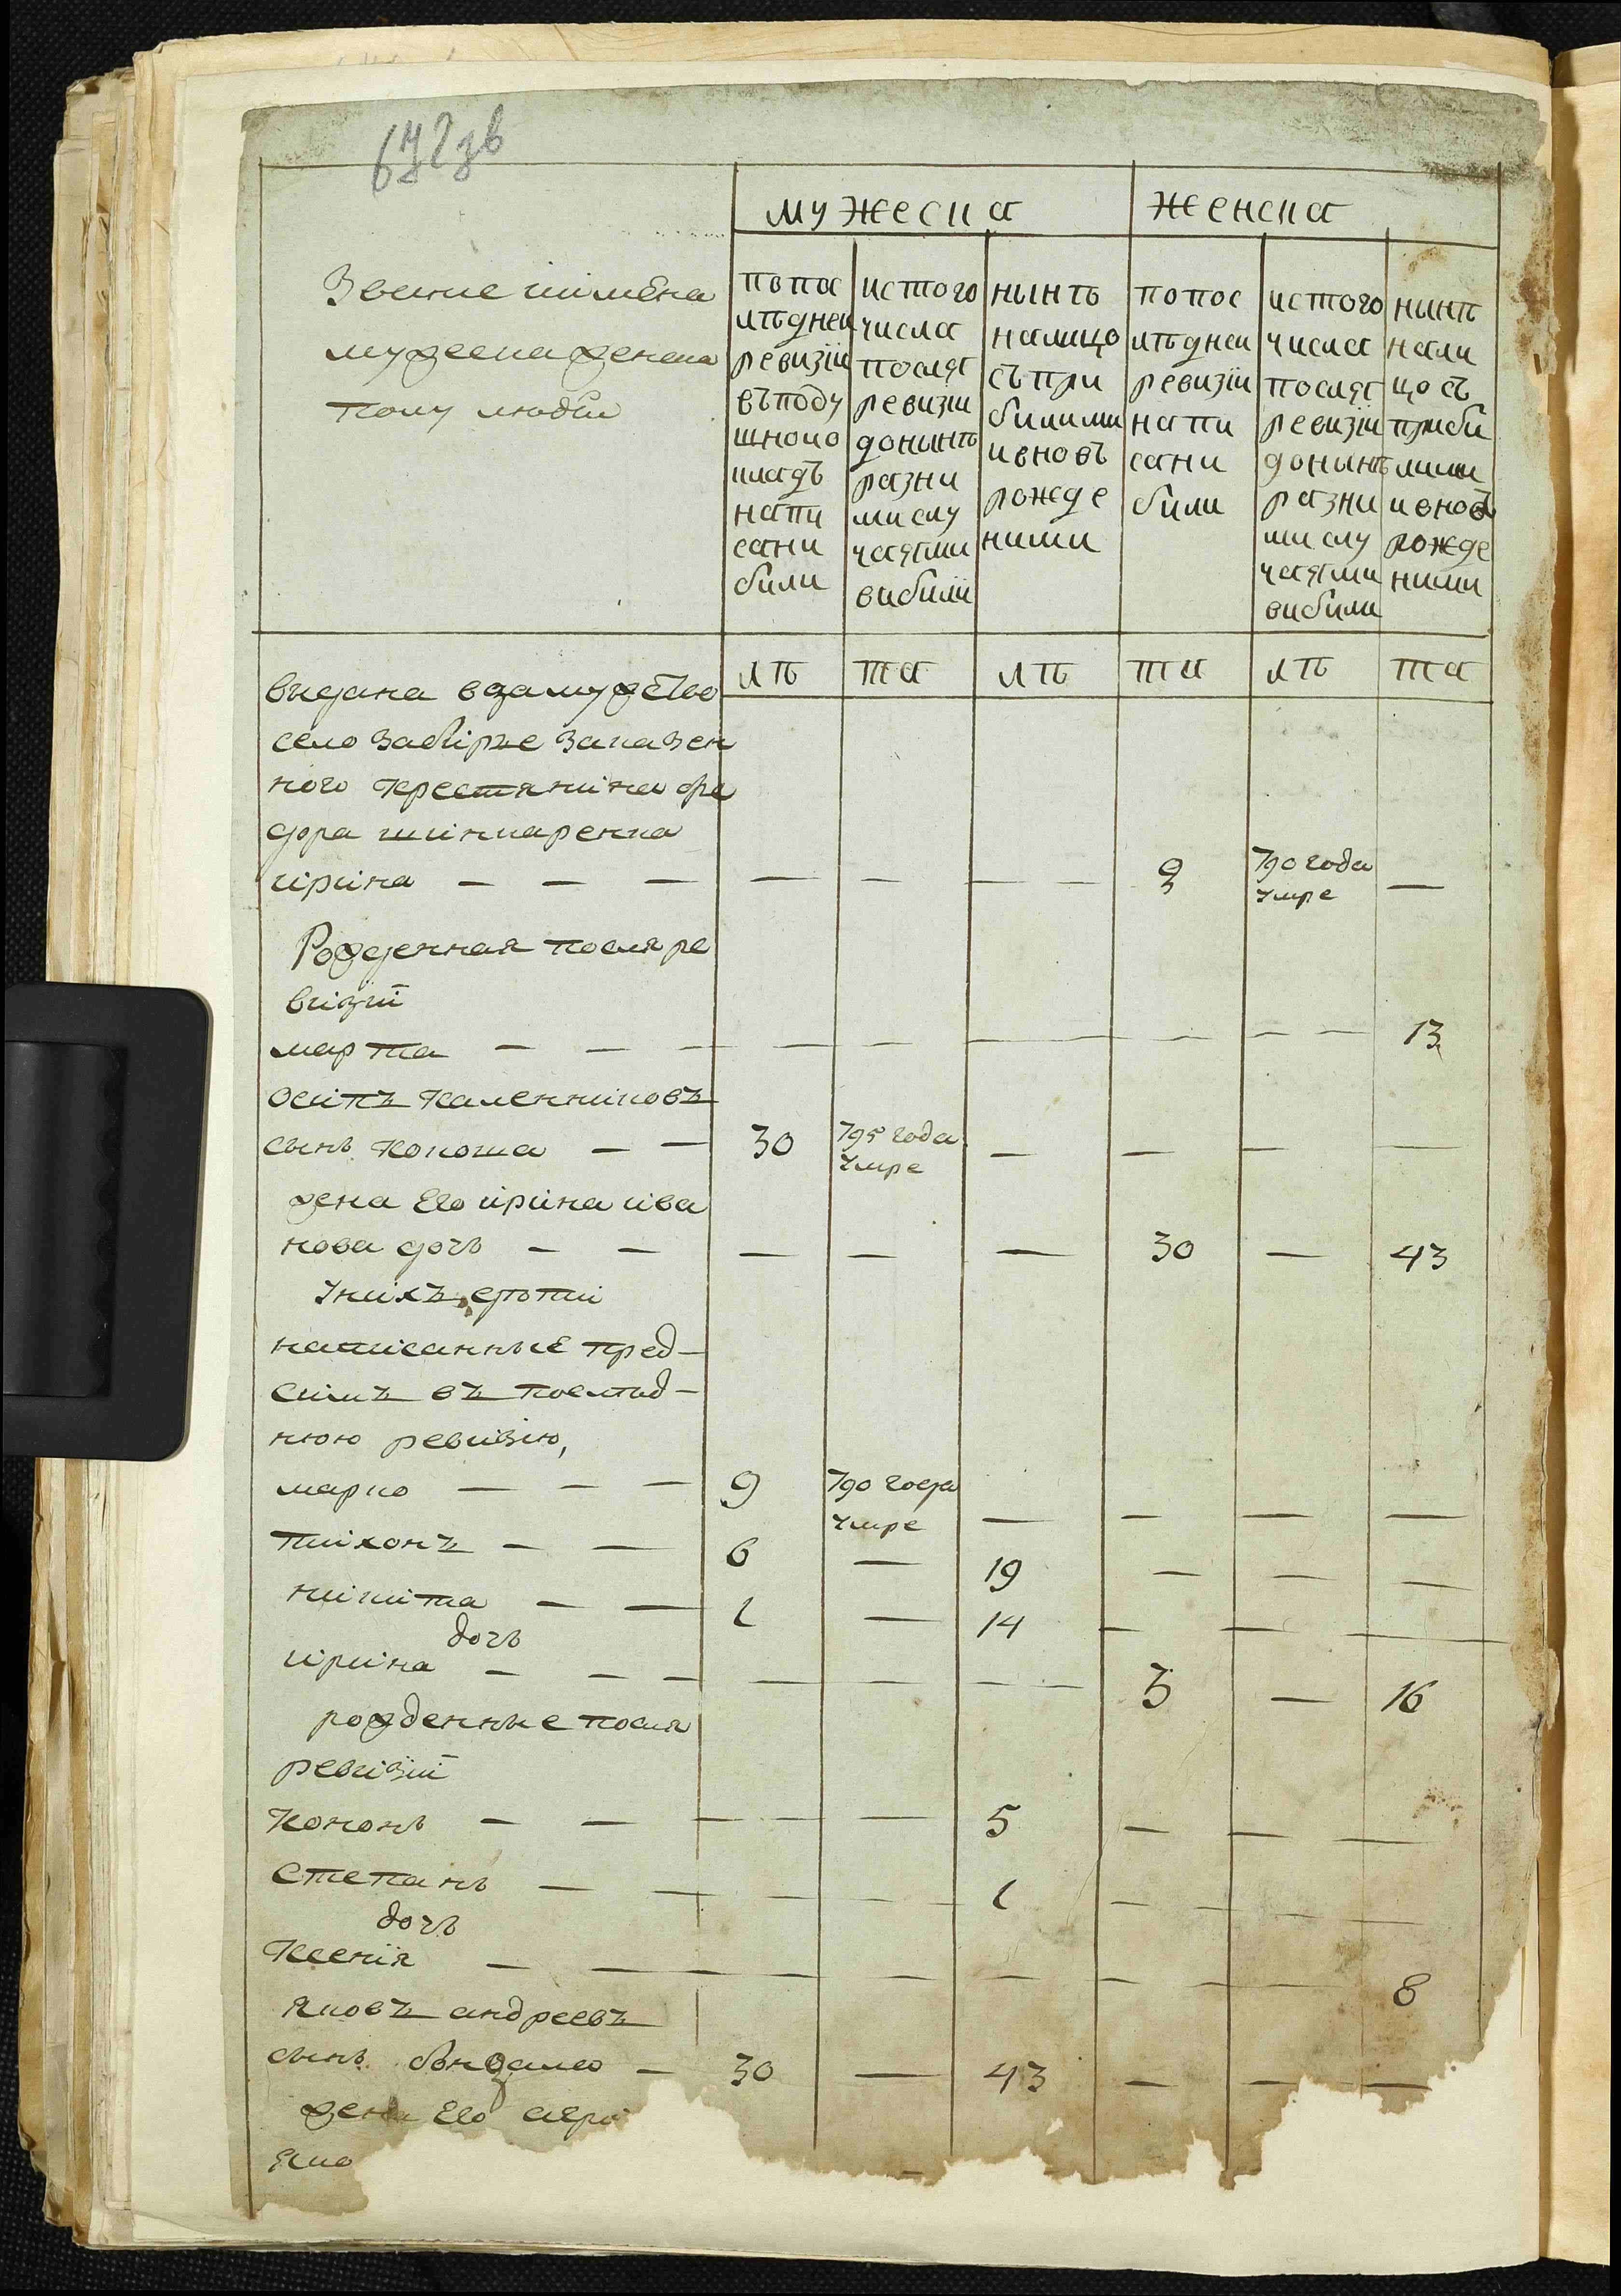 672 зв
мужеска женска
Звание иимена
мужеска женска
полу людби
попос
лѣднеи
ревизіи
въподу
шного
кладъ
напи
сани
били
истого
числа
посля
ревизіи
донынѣ
разни
ми слу
чаями
вибили
нынѣ
налицо
съпри
билими
ивновъ
рожде
ними
попос
лѣднеи
ревизіи
напи
сани
били
истого
числа
посля
ревизіи
донынѣ
разни
ми слу
чаями
вибили
нынѣ
нали
цо съ
приби
лими
ивновъ
рожде
ними
лѣ та лѣ та лѣ та
видана взамужство
село Забіръе Заказен
ного крестянина фе
дора шинкаренка
ирина — — — — — — — 9 790 года умре —
Рожденная посля ре
визіи
марта — — — — — — — — — — 13
Осипъ каленниковъ
сынъ конъша — — 30 795 года умре — — — —
жена Его ирина ива
нова дочъ — — — — — 30 — 43
Унихъ дѣти
написанные пред-
симъ въ послѣд-
нюю ревизію,
марко — — — 9 790 года умре — — — —
тихонъ — — 6 — 19 — — —
никита — — 1 — 14 — — —
дочъ
ирина — — — — — — — 3 — 16
рожденные посля
ревизіи
кононъ — — — — — 5 — — —
степанъ — — — — 1 — — —
дочъ
ксенія — — — — — — — — — 8
яковъ андреевъ
сынъ — 30 — 43 — — —
жена Его
яко